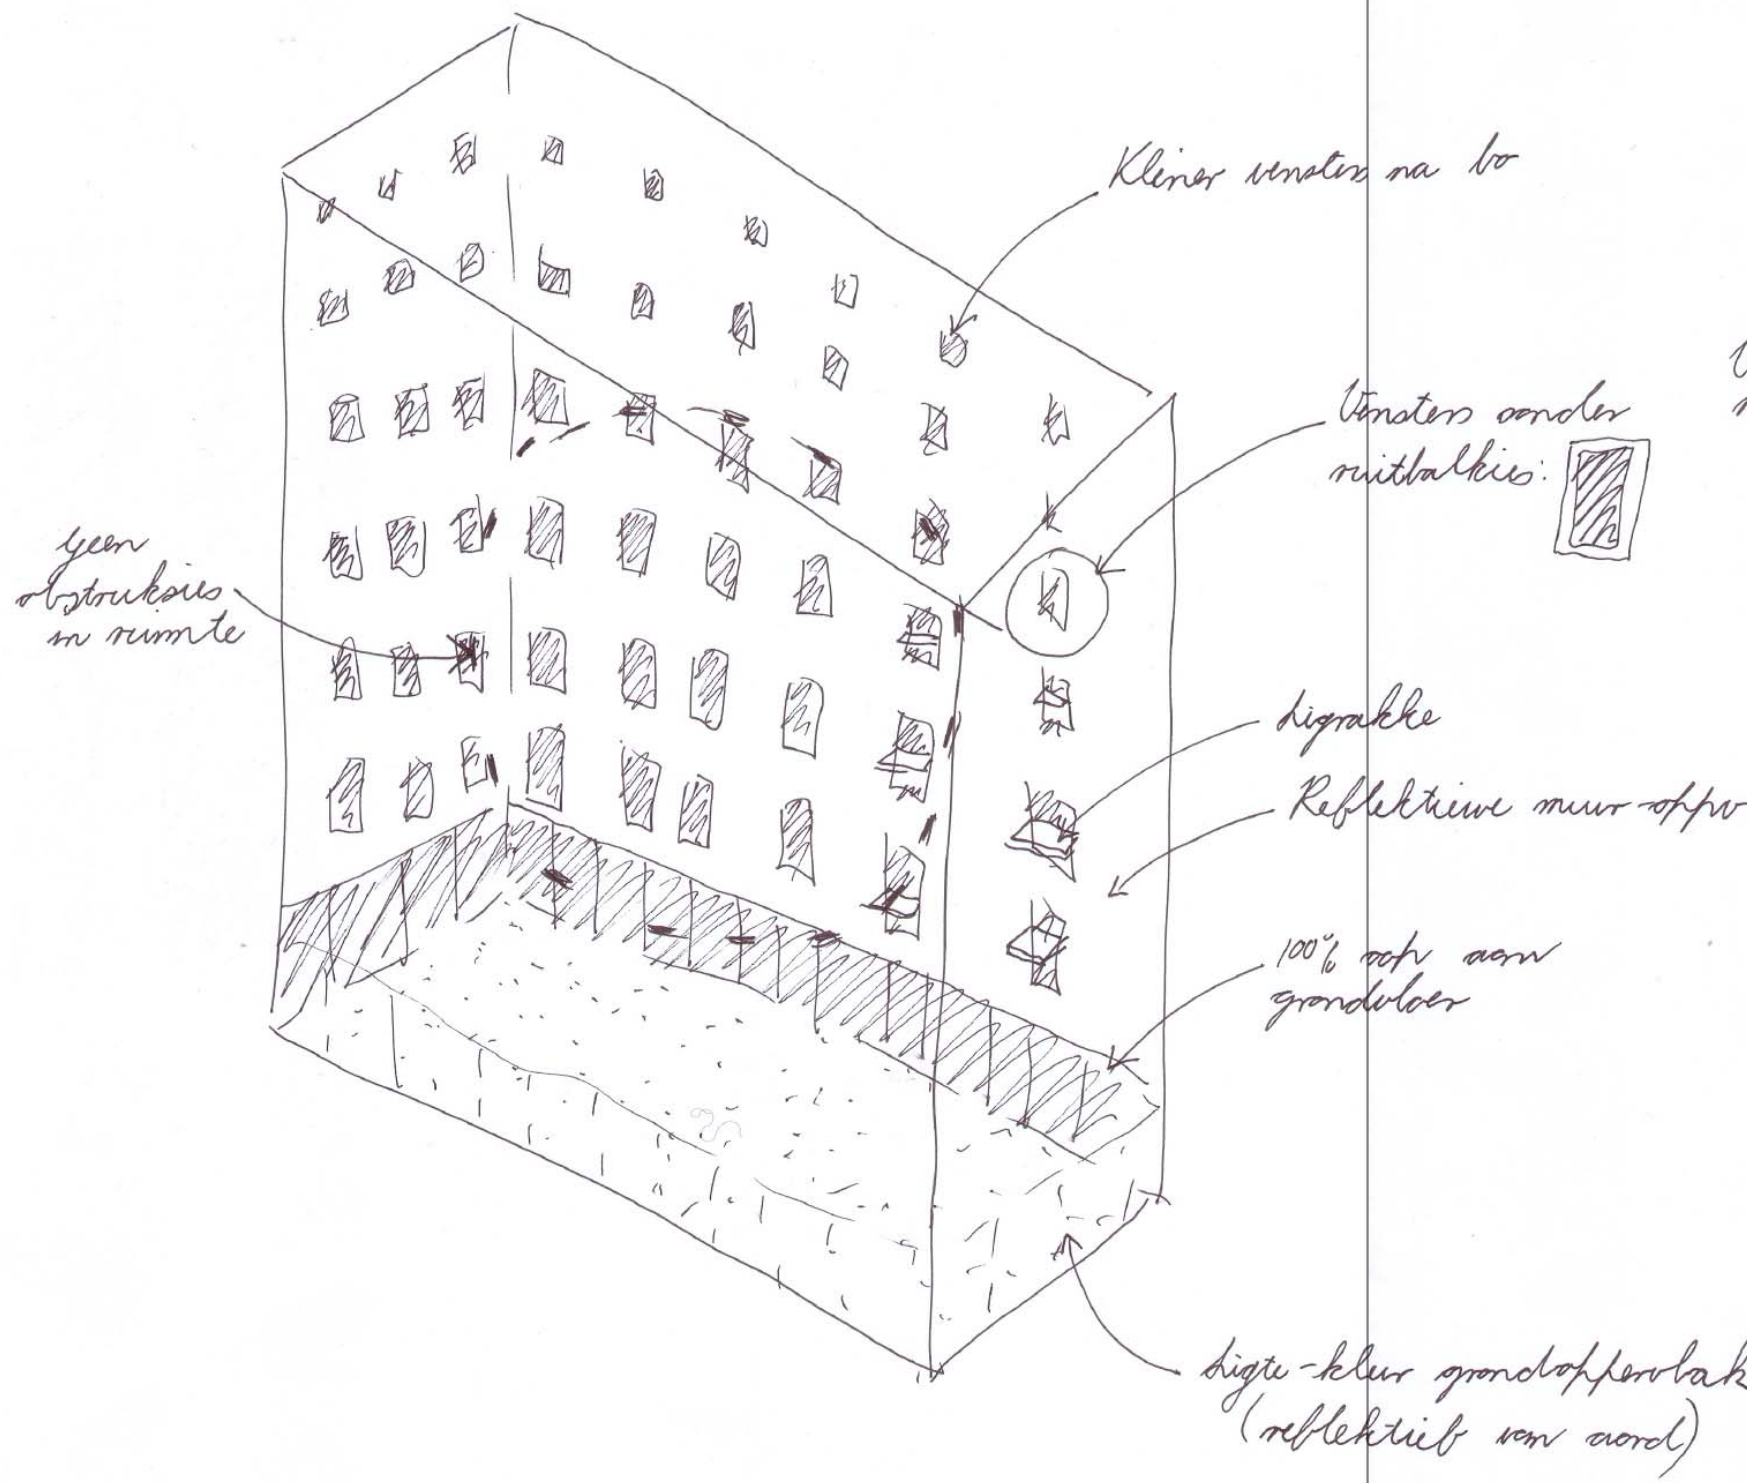 Kleiner vensters na bo
Vensters sonder
ruitbalkies:
geen
obstruksies
in ruimte
Ligrakke
Reflektiewe muur-oppv
100% oop aan
grondvloer
Ligte-kleur grondoppervlak
(reflektief van aard)